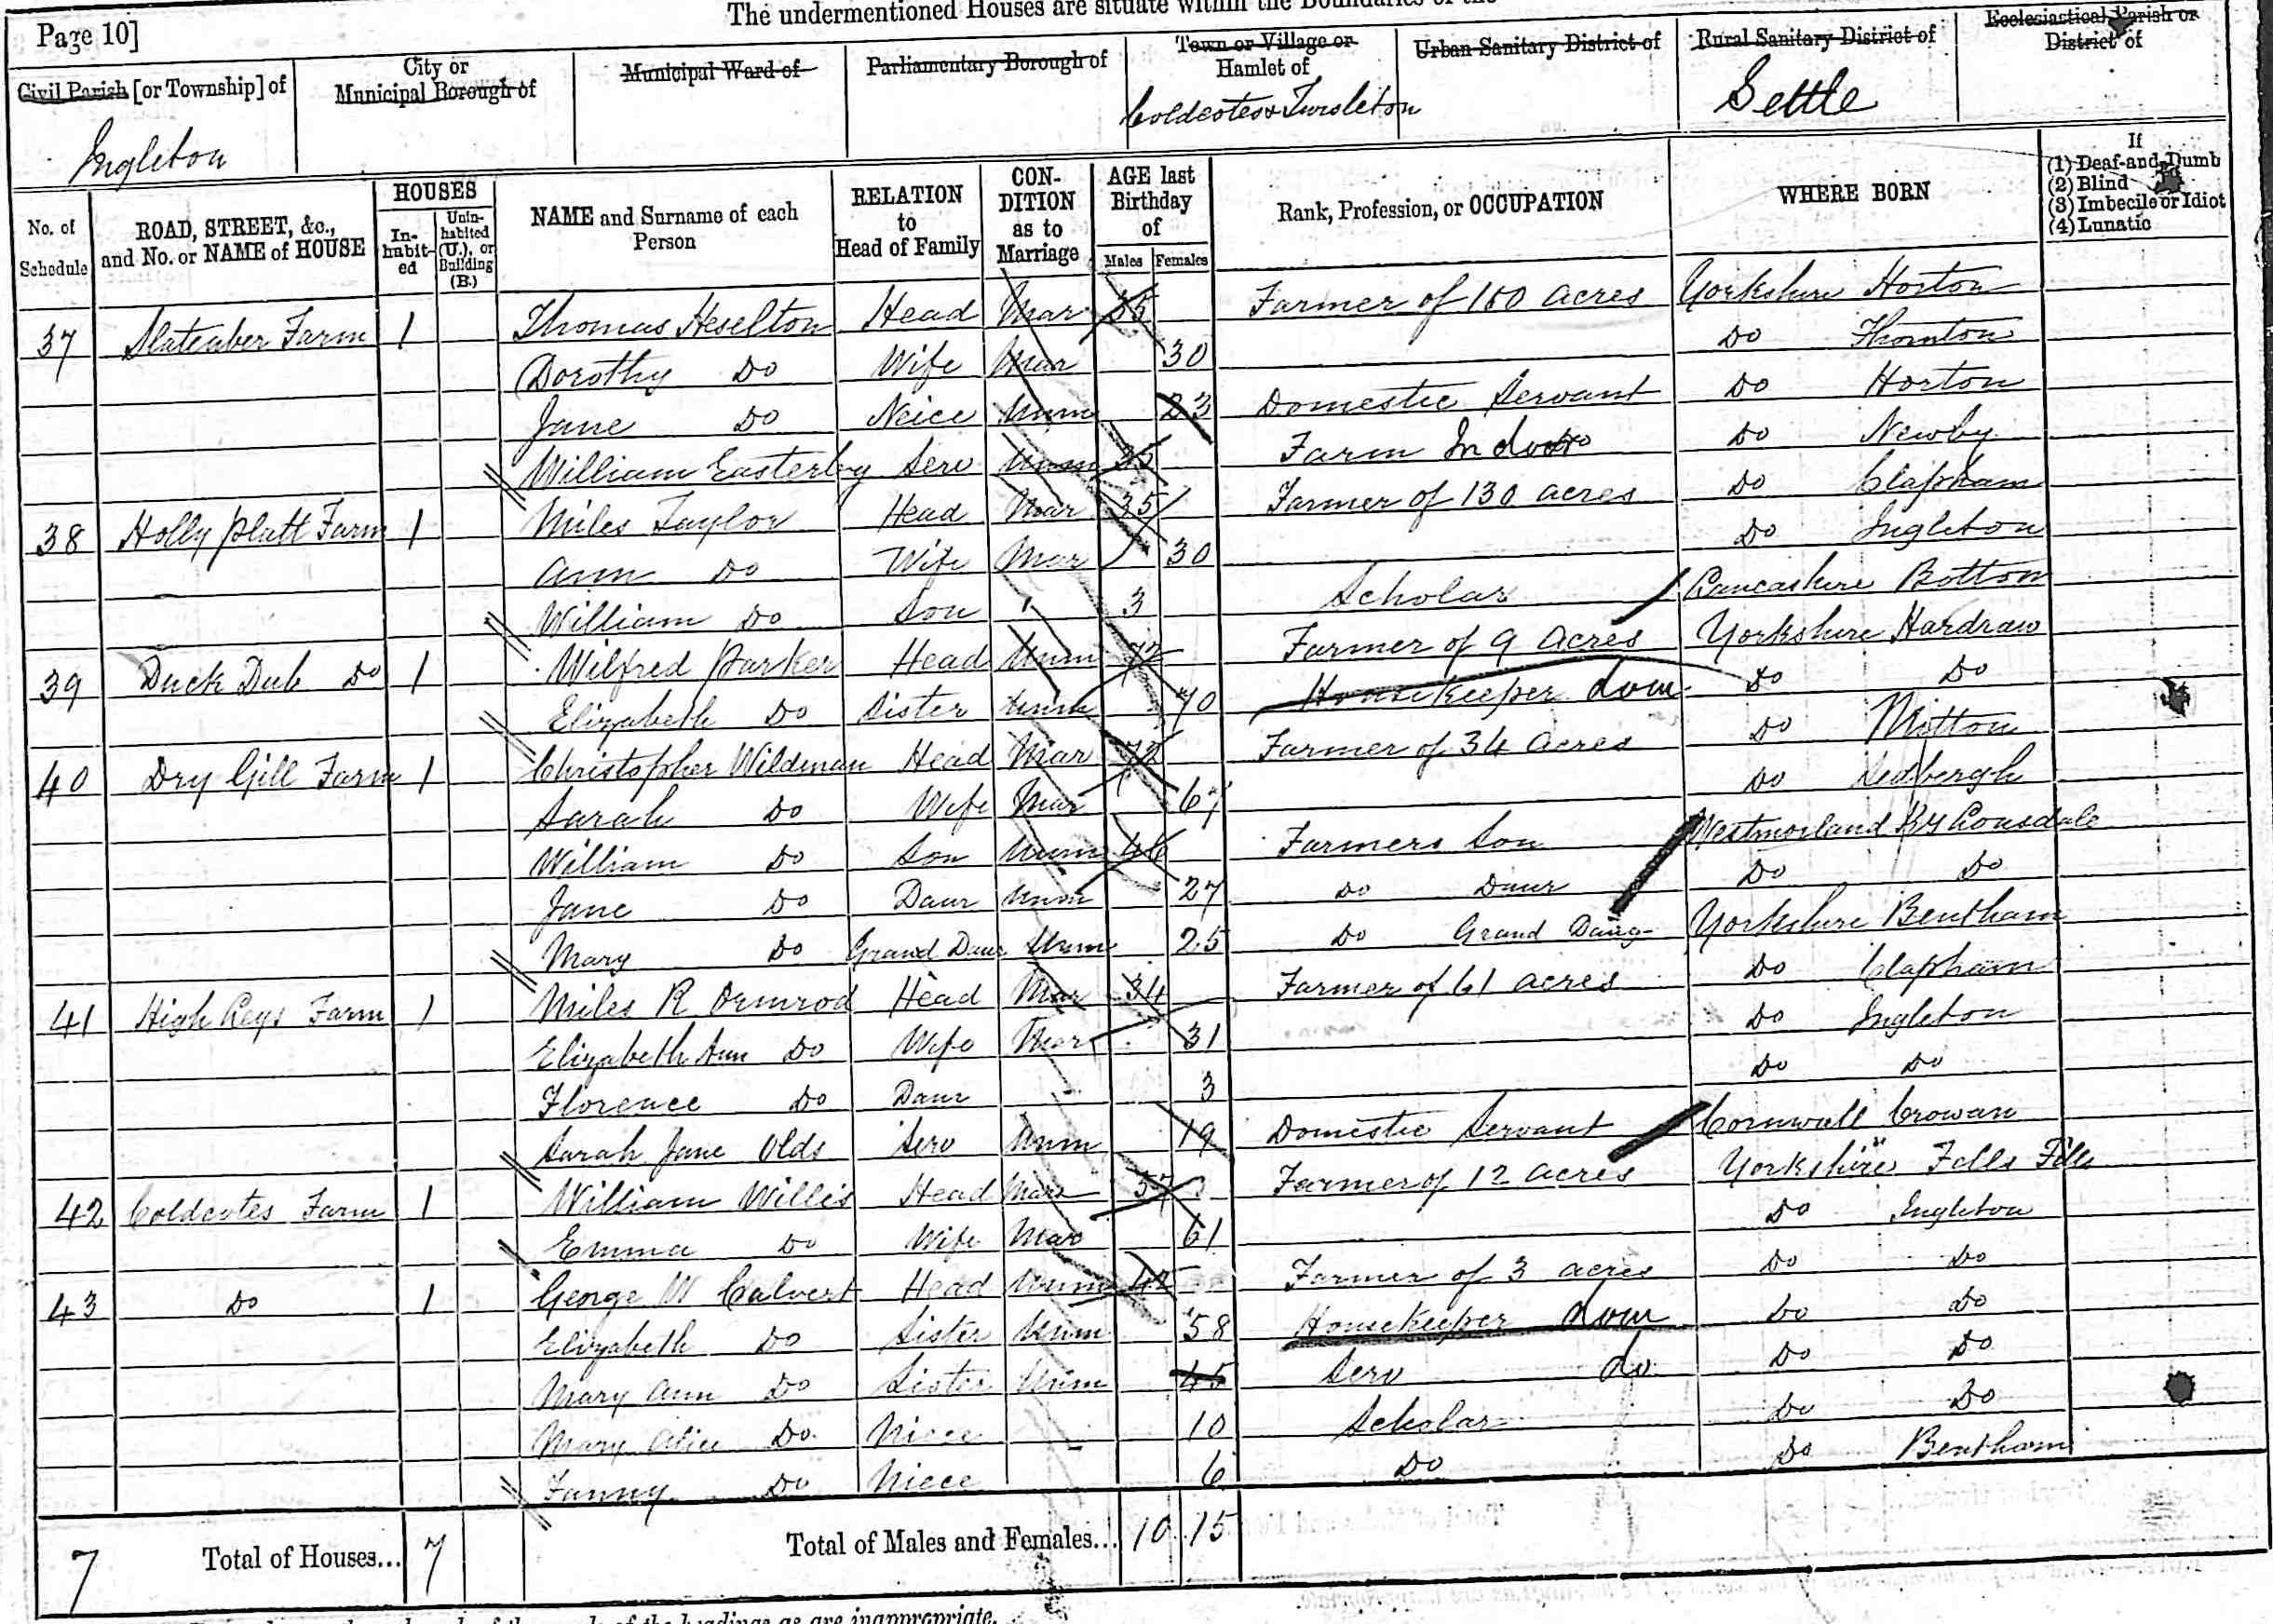 The undermentioned Houses are situate within the Boundaries of the
Page 10]
Civil Parish [or Township] of
City or Municipal Borough of
Municipal Ward of
Parliamentary Borough of
Town or Village or Hamlet of
Urban Sanitary District of
Rural Sanitary District of
Ecclesiastical Parish or District of
Ingleton
Coldcotes & Twisleton
Settle
No. of Schedule
ROAD, STREET, &c., and No. or NAME of HOUSE
HOUSES
In-habit-ed
Unin-habited (U.), or Building (B.)
NAME and Surname of each Person
RELATION to Head of Family
CON-DITION as to Marriage
AGE last Birthday of
Males Females
Rank, Profession, or OCCUPATION
WHERE BORN
If
(1) Deaf-and-Dumb
(2) Blind
(3) Imbecile or Idiot
(4) Lunatic
37 Slatenber Farm 1 Thomas Heselton Head Mar 35 Farmer of 150 acres Yorkshire Horton
Dorothy Do Wife Mar 30 Do Thornton
Jane Do Neice Unm 23 Domestic Servant Do Horton
William Easterby Serv Unm Farm Indoor Do Newby
38 Holly Platt Farm 1 Miles Taylor Head Mar 35 Farmer of 130 acres Do Clapham
Ann Do Wife Mar 30 Do Ingleton
William Do Son 3 Scholar Lancashire Botton
39 Duck Dub Do 1 Wilfred Parker Head Unm 72 Farmer of 9 Acres Yorkshire Hardraw
Elizabeth Do Sister Unm 70 Housekeeper dom Do Do
40 Dry Gill Farm 1 Christopher Wildman Head Mar 72 Farmer of 34 Acres Do Mitton
Sarah Do Wife Mar 67 Do Sedbergh
William Do Son Unm 46 Farmers Son Westmorland Kby Lonsdale
Jane Do Daur Unm 27 Do Daur Do Do
Mary Do Grand Daur Unm 25 Do Grand Daug Yorkshire Bentham
41 High Leys Farm 1 Miles R Ormrod Head Mar 34 Farmer of 61 acres Do Clapham
Elizabeth Ann Do Wife Mar 31 Do Ingleton
Florence Do Daur 3 Do Do
Sarah Jane Olds Serv Unm 19 Domestic Servant Cornwall Crowan
42 Coldcotes Farm 1 William Willis Head Mar 57 Farmer of 12 acres Yorkshire Fells
Emma Do Wife Mar 61 Do Ingleton
43 Do 1 George W Calvert Head Unm 42 Farmer of 3 acres Do Do
Elizabeth Do Sister Unm 58 Housekeeper dom Do Do
Mary Ann Do Sister Unm 45 Serv do Do Do
Mary Alice Do Niece 10 Scholar Do Do
Fanny Do Niece 6 Do Do Bentham
7 Total of Houses... 7 Total of Males and Females... 10 15